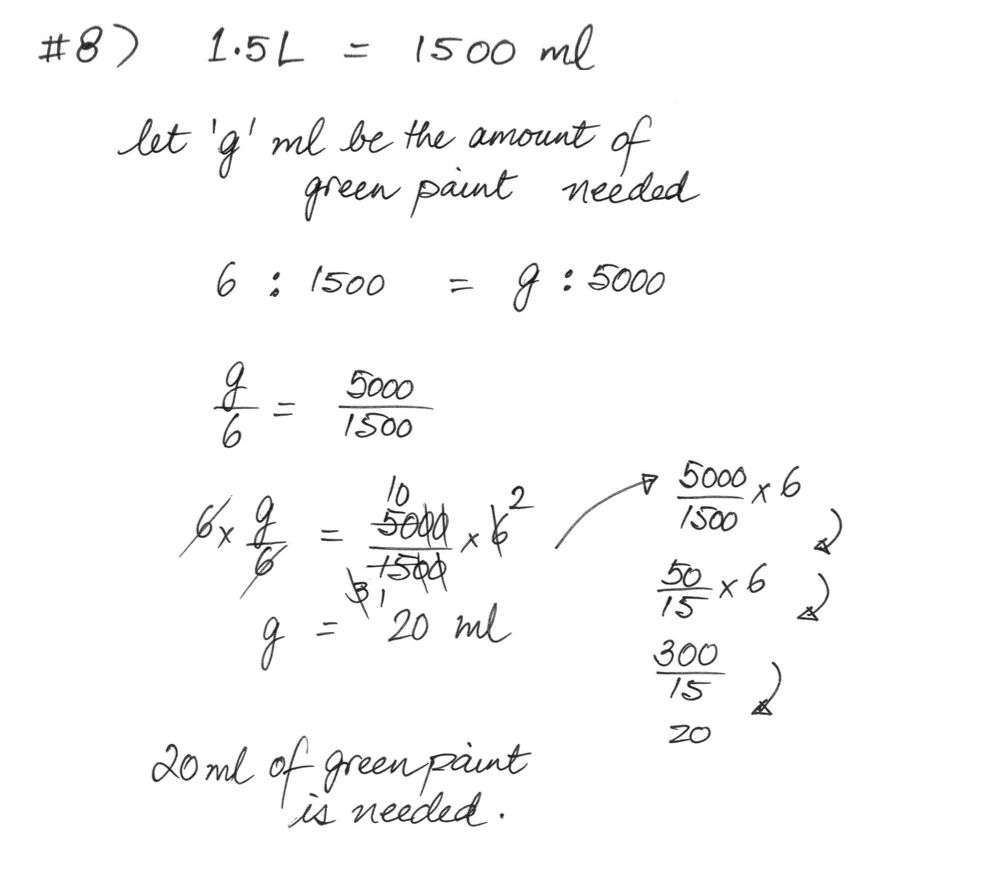 #8) 1.5L = 1500 ml
let 'g' ml be the amount of
green paint needed
6 : 1500 = g : 5000
g/6 = 5000/1500
6 x g/6 = 5000/1500 x 6
10
2
3 1
g = 20 ml
5000/1500 x 6
50/15 x 6
300/15
20
20ml of green paint
is needed.